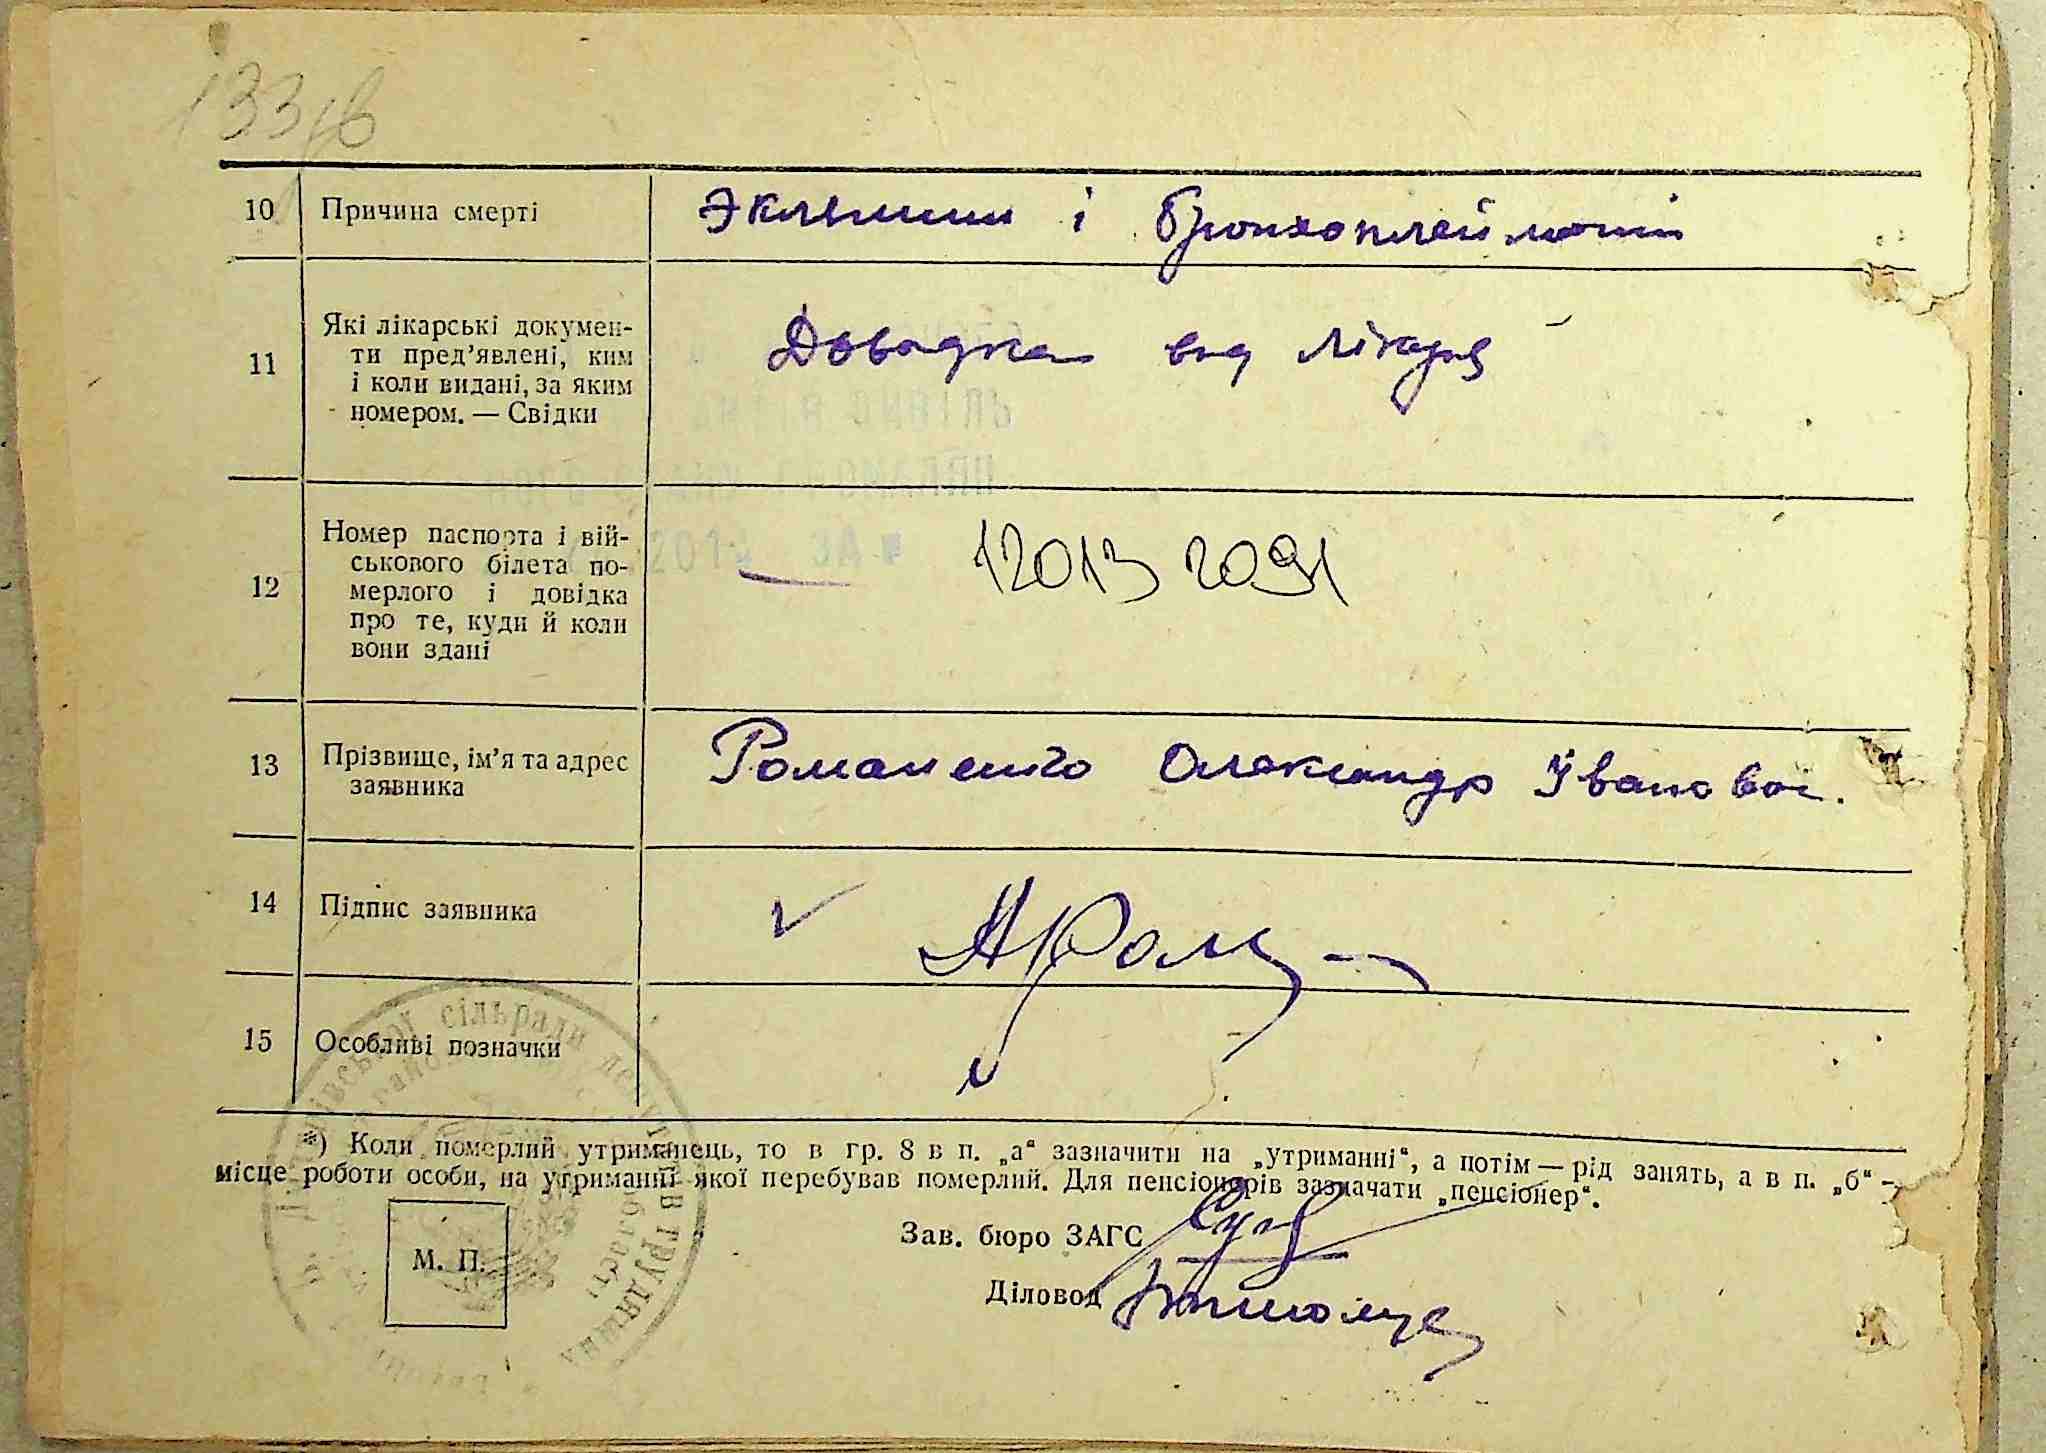 133
10 Причина смерті і
11 Які лікарські докумен-
ти пред’явлені, ким
і коли видані, за яким
номером. — Свідки
Довидка вид лікаря
12 Номер паспорта і вій-
ськового білета по-
мерлого і довідка
про те, куди й коли
вони здані
— 12013 2091
13 Прізвище, ім’я та адрес
заявника
Романенко Олександр Іванович.
14 Підпис заявника
15 Особливі позначки
*) Коли померлий утриманець, то в гр. 8 в п. „а“ зазначити на „утриманні“, а потім — рід занять, а в п. „б“ -
місце роботи особи, на утриманні якої перебував померлий. Для пенсіонерів зазначати „пенсіонер“.
Зав. бюро ЗАГС
М. П.
Діловод
сільради трудящих